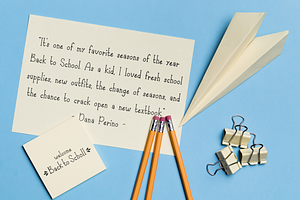 "It's one of my favorite seasons of the year
Back to School. As a kid, I loved fresh school
supplies, new outfits, the change of seasons, and
the chance to crack open a new textbook."
- Dana Perino -
welcome
Back to School!